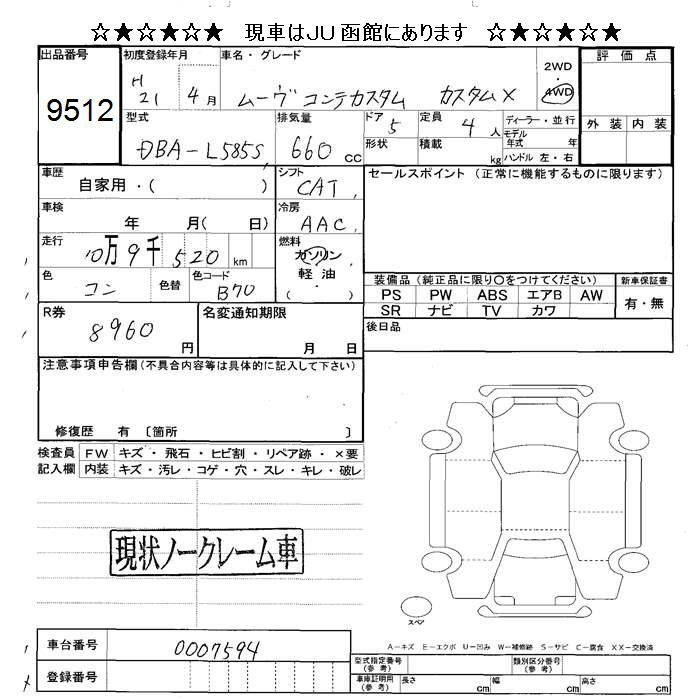 ☆★☆★☆★ 現車はJU函館にあります ☆★☆★☆★
出品番号 初度登録年月 車名・グレード 2WD ・ 4WD 評価点
9512 H21 4月 ムーヴ コンテカスタム カスタムX
型式 排気量 ドア 5 定員 4人 ディーラー・並行 外装 内装
DBA-L585S 660cc 形状 積載 kg モデル年式 年
ハンドル 左・右
車歴 自家用・( ) シフト CAT セールスポイント (正常に機能するものに限ります)
車検 年 月( 日) 冷房 AAC
走行 10万9千520km 燃料 ガソリン
軽油
( )
色 コン 色替 色コード B70
装備品 (純正品に限り○をつけてください) 新車保証書
PS PW ABS エアB AW 有・無
SR ナビ TV カワ
R券 8960円 名変通知期限 月 日 後日品
注意事項申告欄(不具合内容等は具体的に記入して下さい)
修復歴 有 〔箇所 〕
検査員 FW キズ・飛石・ヒビ割・リペア跡・×要
記入欄 内装 キズ・汚レ・コゲ・穴・スレ・キレ・破レ
現状ノークレーム車
スペア
A-キズ E-エクボ U-凹み W-補修跡 S-サビ C-腐食 XX-交換済
車台番号 0007594
型式指定番号(参考) 類別区分番号(参考)
登録番号
車庫証明用(参考) 長さ cm 幅 cm 高さ cm